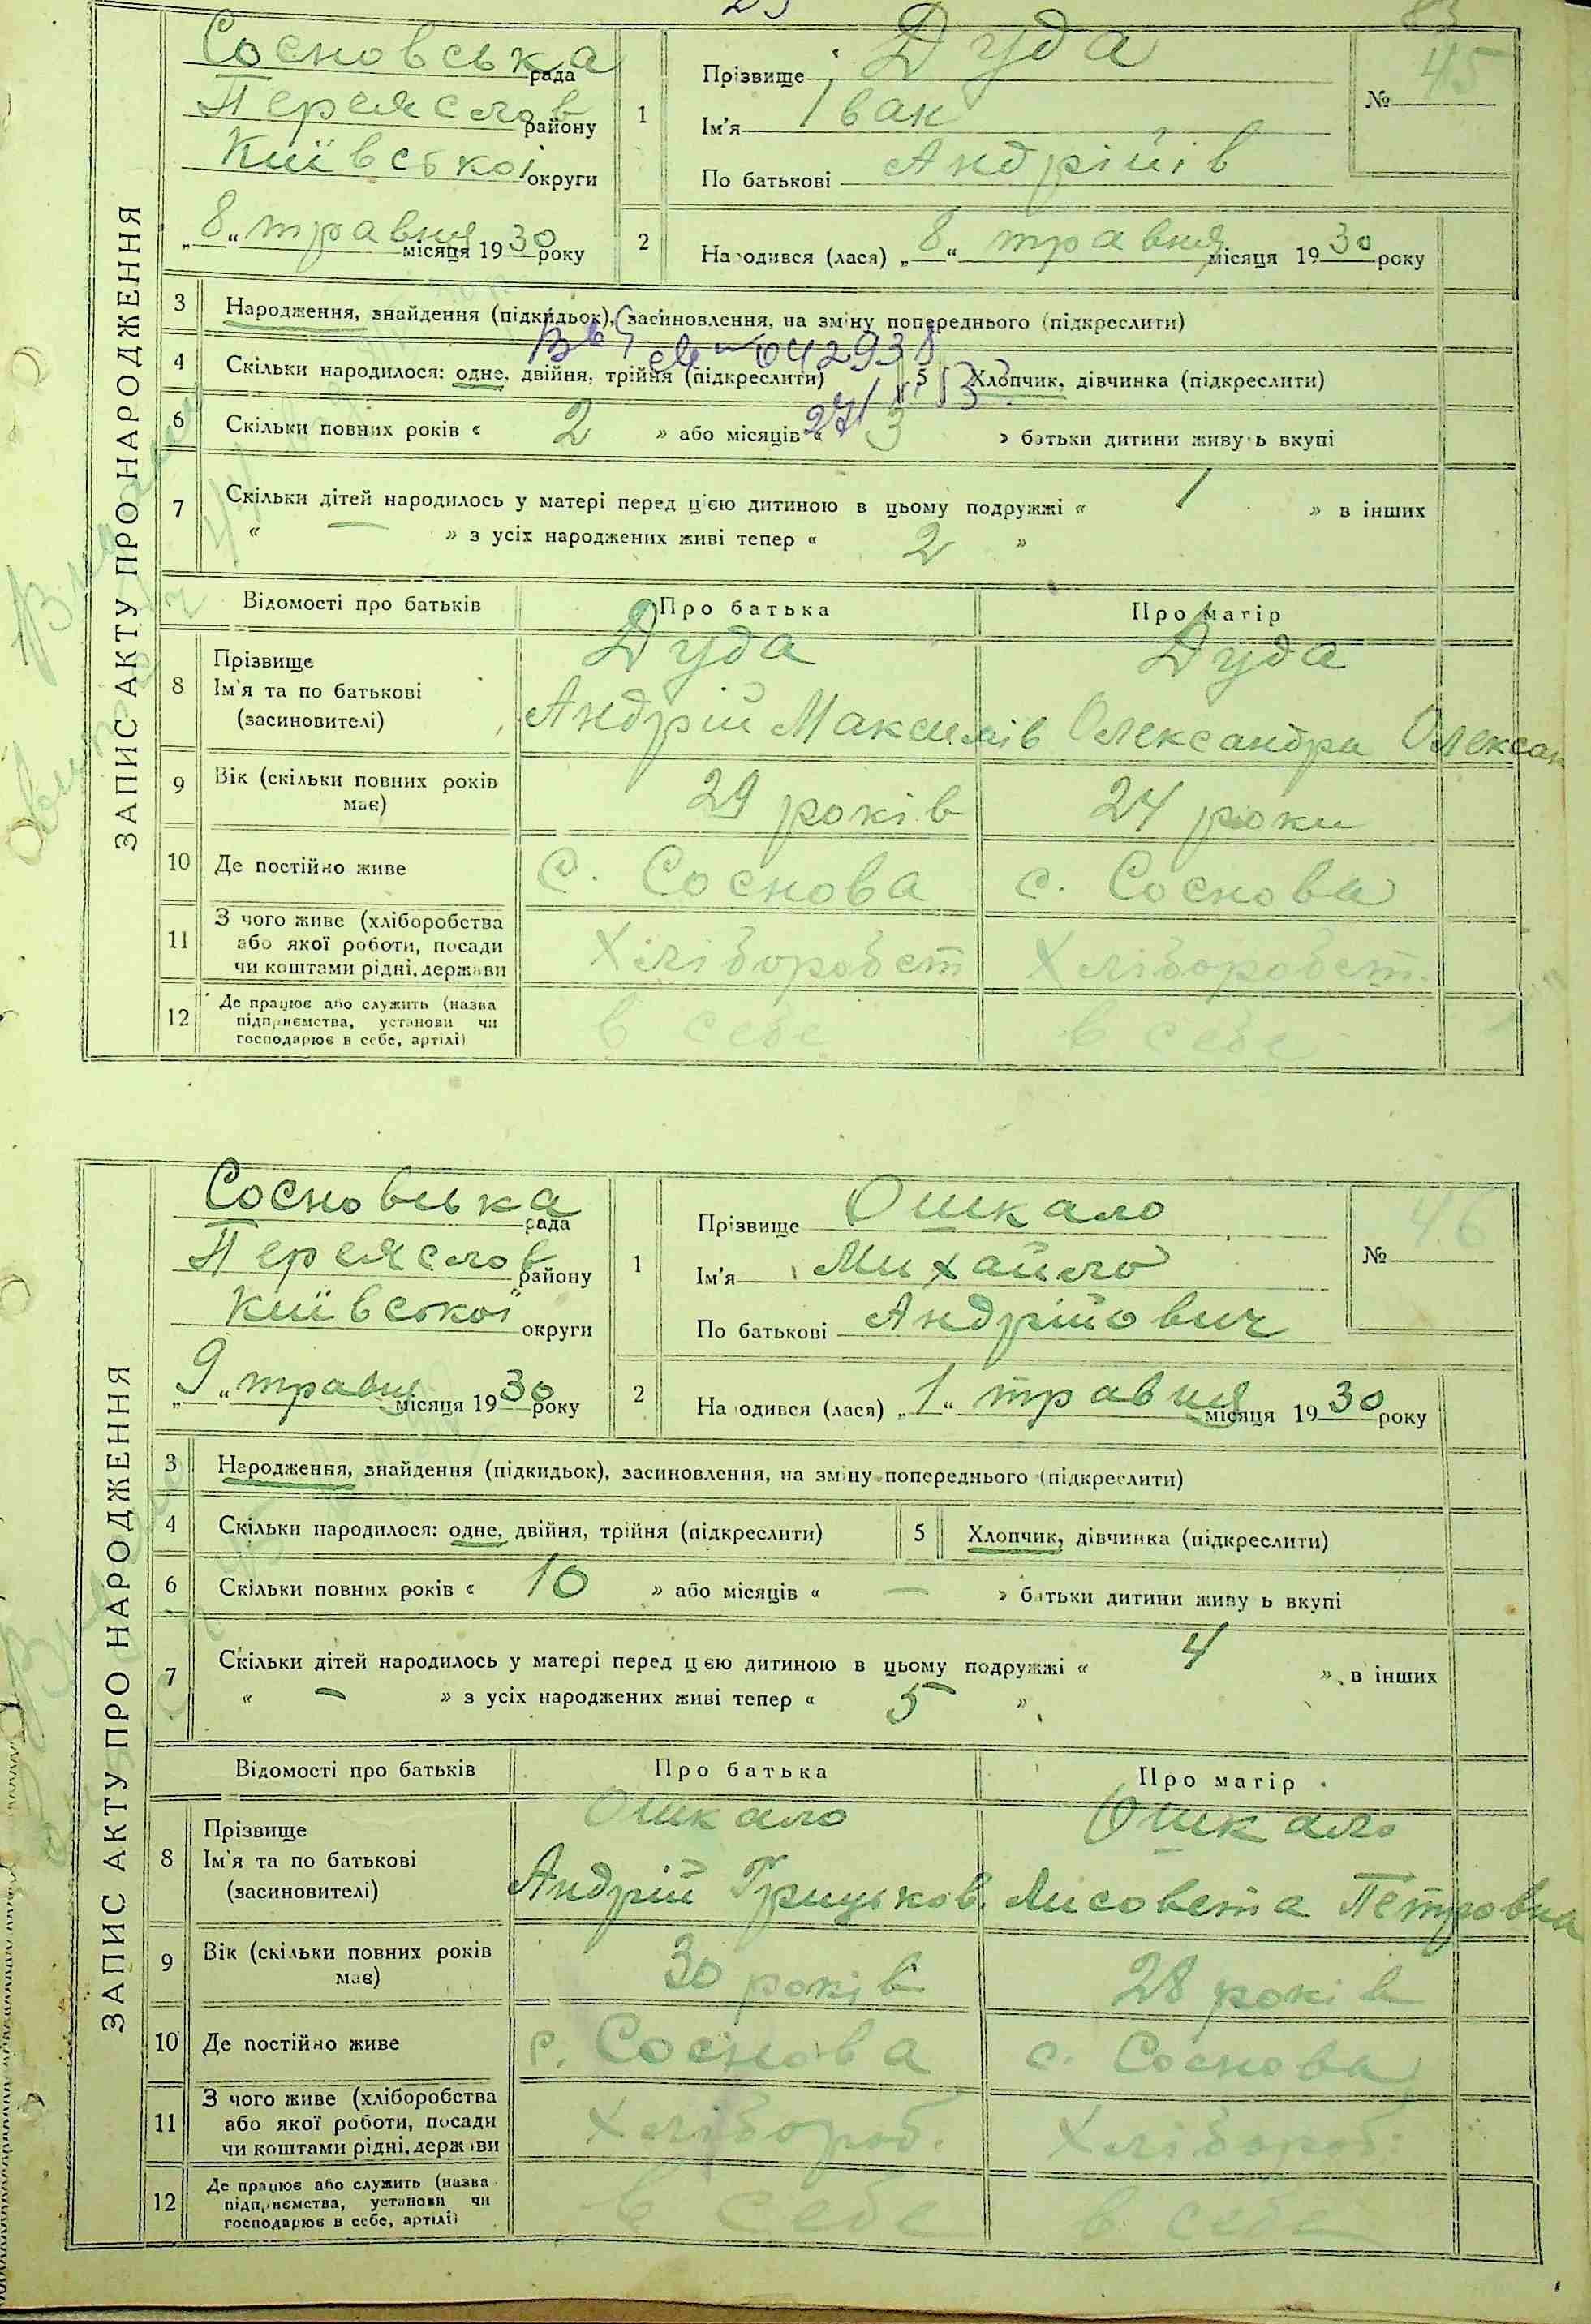 83
ЗАПИС АКТУ ПРО НАРОДЖЕННЯ
Сосновська рада
Переяслов району
Київської округи
„8“ травня місяця 1930 року
1
Прізвище Дуда
Ім'я Іван
По батькові Андріїв
№ 45
2
Народився (лася) „8“ травня місяця 1930 року
3 Народження, знайдення (підкидьок), засиновлення, на зміну попереднього (підкреслити)
042938
4 Скільки народилося: одне, двійня, трійня (підкреслити) 5 Хлопчик, дівчинка (підкреслити)
6 Скільки повних років « 2 » або місяців « 3 » батьки дитини живуть вкупі
7 Скільки дітей народилось у матері перед цією дитиною в цьому подружжі « 1 » в інших
« — » з усіх народжених живі тепер « 2 »
Відомості про батьків Про батька Про матір
8 Прізвище Ім'я та по батькові (засиновителі)
Дуда Дуда
Андрій Максимів Олександра Олексан
9 Вік (скільки повних років має) 29 років 24 роки
10 Де постійно живе с. Соснова с. Соснова
11 З чого живе (хліборобства або якої роботи, посади чи коштами рідні, держави Хліборобст Хліборобст.
12 Де працює або служить (назва підприємства, установи чи господарює в себе, артілі) в себе в себе
ЗАПИС АКТУ ПРО НАРОДЖЕННЯ
Сосновська рада
Переяслов району
Київської округи
„9“ травня місяця 1930 року
1
Прізвище Ошкало
Ім'я Михайло
По батькові Андрійович
№ 46
2
Народився (лася) „1“ травня місяця 1930 року
3 Народження, знайдення (підкидьок), засиновлення, на зміну попереднього (підкреслити)
4 Скільки народилося: одне, двійня, трійня (підкреслити) 5 Хлопчик, дівчинка (підкреслити)
6 Скільки повних років « 10 » або місяців « — » батьки дитини живуть вкупі
7 Скільки дітей народилось у матері перед цією дитиною в цьому подружжі « 4 » в інших
« — » з усіх народжених живі тепер « 5 »
Відомості про батьків Про батька Про матір
8 Прізвище Ім'я та по батькові (засиновителі)
Ошкало Ошкало
Андрій Грицьков. Лисовета Петровна
9 Вік (скільки повних років має) 30 років 28 років
10 Де постійно живе с. Соснова с. Соснова
11 З чого живе (хліборобства або якої роботи, посади чи коштами рідні, держави Хлібороб. Хлібороб.
12 Де працює або служить (назва підприємства, установи чи господарює в себе, артілі) в себе в себе